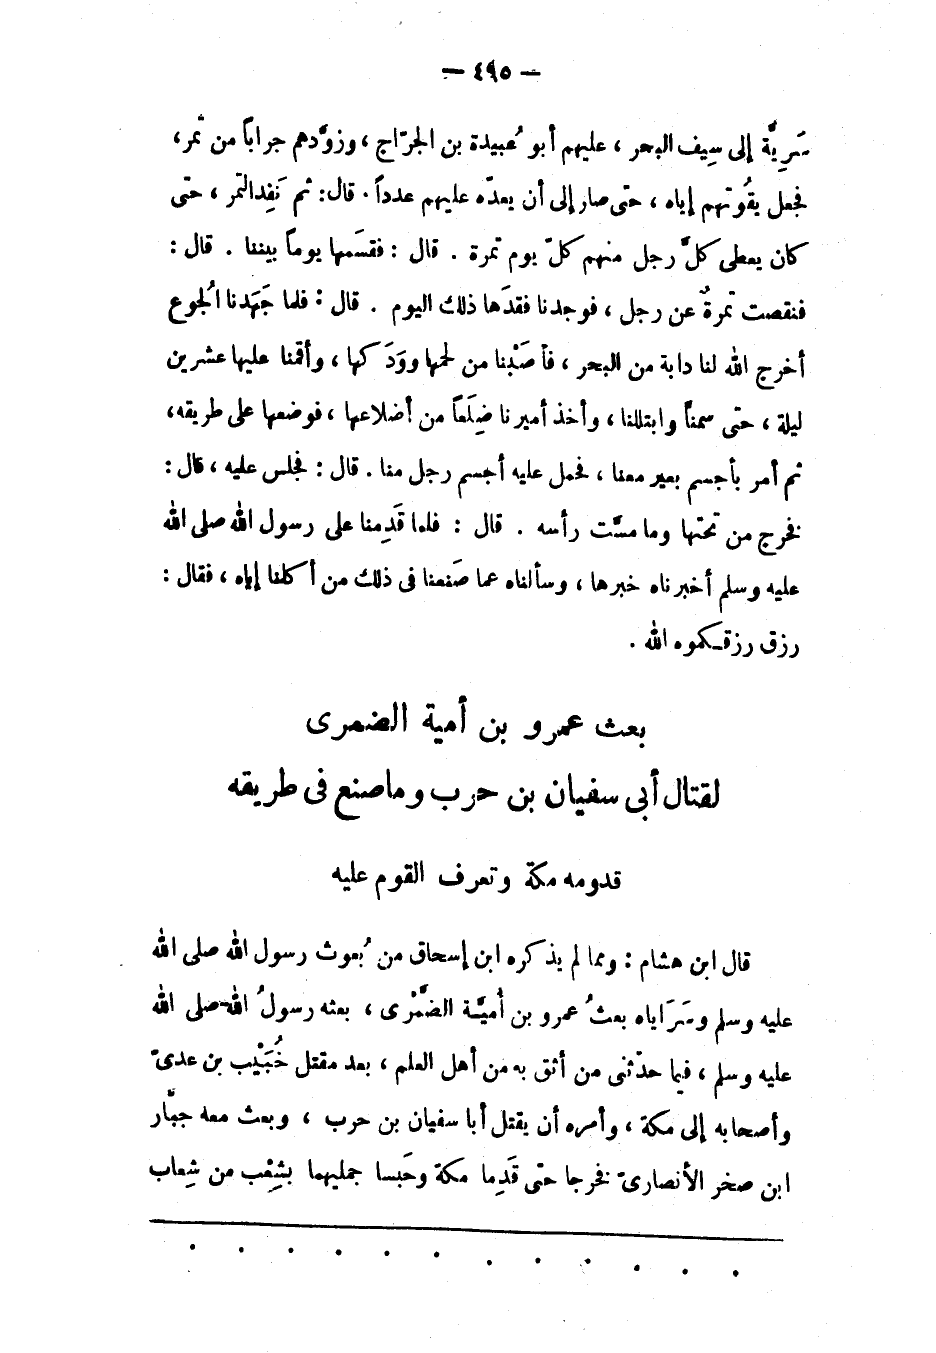 — ٤٩٥ —
سَرِيَّة إلى سِيف البحر ، عليهم أبو عُبيدة بن الجرّاج ، وزوَّدهم جراباً من تمر،
فجعل يقُوتهم إياه ، حتى صار إلى أن يعدّه عليهم عدداً . قال: ثم نَفِد التمر ، حتى
كان يعطى كلَّ رجل منهم كلّ يوم تمرة . قال : فقسَمها يوماً بيننا . قال :
فنقصت تمرةٌ عن رجل ، فوجدنا فقدَها ذلك اليوم . قال : فلما جَهَدنا الجُوع
أخرج الله لنا دابة من البحر ، فأصَبْنا من لحمها وودَكها ، وأقمنا عليها عشرين
ليلة ، حتى سمنَّا وابتللنا ، وأخذ أميرنا ضِلَعاً من أضلاعها ، فوضعها على طريقه،
ثم أمر بأجسم بعير معنا ، فحمل عليه أجسم رجل منا . قال : فجلس عليه ، قال :
فخرج من تحتها وما مسَّت رأسه . قال : فلما قَدِمنا على رسول الله صلى الله
عليه وسلم أخبرناه خبرها ، وسألناه عما صَنعنا فى ذلك من أكلنا إياه ، فقال :
رزق رزقـكموه الله .
بعث عمرو بن أمية الضمرى
لقتال أبى سفيان بن حرب وما صنع فى طريقه
قدومه مكة وتعرف القوم عليه
قال ابن هشام : ومما لم يذكره ابن إسحاق من بُعوث رسول الله صلى الله
عليه وسلم وسَرَاياه بعثُ عمرو بن أُميَّـة الضَّمْرى ، بعثه رسولُ الله صلى الله
عليه وسلم ، فيما حدّثنى من أثق به من أهل العلم ، بعد مقتل خُبَيْب بن عدىّ
وأصحابه إلى مكة ، وأمره أن يقتل أبا سفيان بن حرب ، وبعث معه جبَّار
ابن صخر الأنصارىّ فخرجا حتى قَدِما مكة وحَبسا جمليهما بشِعْب من شِعاب
. . . . . . . . . . . .